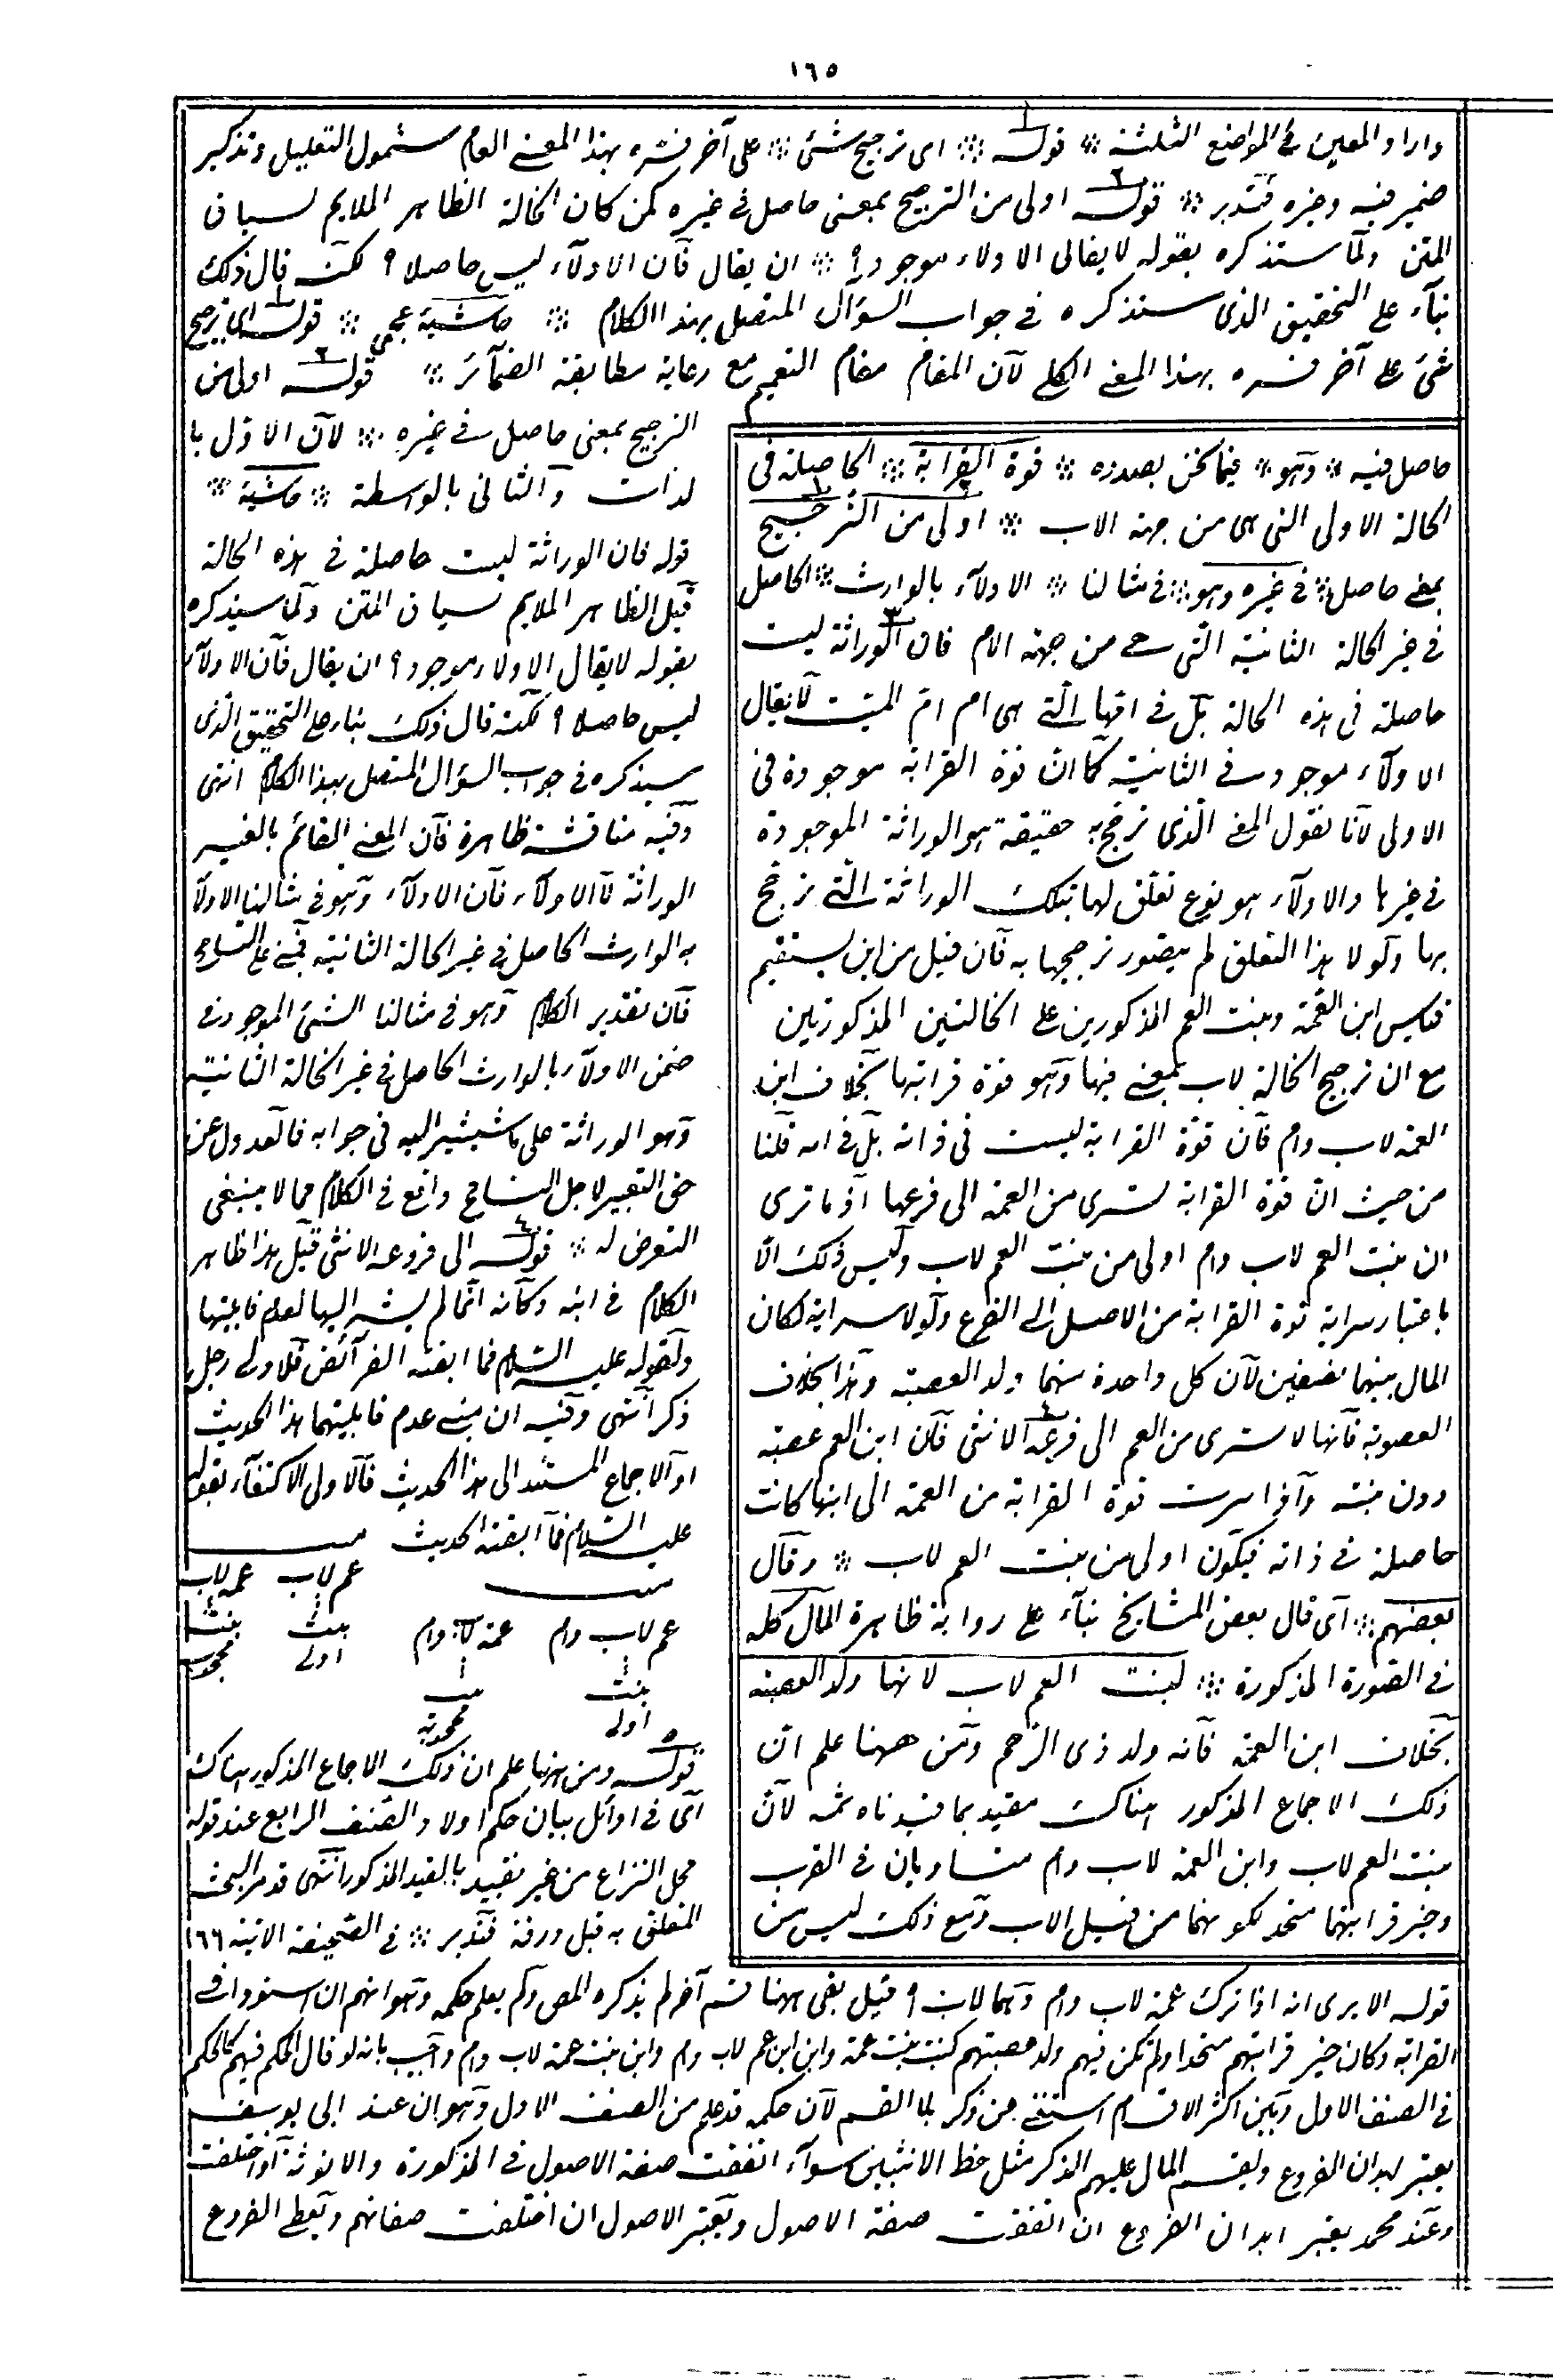 ١٦٥
واراد المعين فى المواضع الثلثة ❊ قوله ❊ اى ترجيح شئ ❊ على آخر فسره بهذا المعنى العام لشمول التعليل وتذكير
ضمير فيه وخبره فتدبر ❊ قوله اولى من الترجيح بمعنى حاصل فى غيره كمن كان الخالة الظاهر الملايم لسياق
المتن ولما ستذكره بقوله لا يقال الاولاء موجود ؟ ❊ ان يقال فان الاولاء ليس حاصلا ؟ لكنه قال ذلك
بناء على التحقيق الذى ستذكره فى جواب السؤال المتصل بهذا الكلام ❊ حاشية عجمى ❊ قوله اى ترجيح
شئ على آخر فسره بهذا المعنى الكلى لان المقام مقام التعميم مع رعاية مطابقة الضمائر ❊ قوله اولى من
حاصل فيه ❊ وهو ❊ فيما نحن بصدده ❊ قوة القرابة ❊ الحاصلة فى
الحالة الاولى التى هى من جهة الاب ❊ اولى من الترجيح
بمعنى حاصل ❊ فى غيره وهو ❊ فى مثالنا ❊ الاولاء بالوارث ❊ الحاصل
فى غير الحالة الثانية التى هى من جهة الام فان الوراثة ليست
حاصلة فى هذه الحالة بل فى امها التى هى ام ام الميت لا يقال
الاولاء موجود فى الثانية كما ان قوة القرابة موجودة فى
الاولى لانا نقول المعنى الذى ترجح به حقيقة هو الوراثة الموجودة
فى غيرها والاولاء هو نوع تعلق لها بتلك الوراثة التى ترجح
بها ولولا هذا التعلق لم يتصور ترجيحها به فان قيل من اين يستقيم
قياس ابن العمة وبنت العم المذكورين على الخالتين المذكورتين
مع ان ترجيح الخالة لاب بمعنى فيها وهو قوة قرابتها بخلاف ابن
العمة لاب وام فان قوة القرابة ليست فى ذاته بل فى امه قلنا
من حيث ان قوة القرابة تسرى من العمة الى فرعها اذ ما ترى
ان بنت العم لاب وام اولى من بنت العم لاب وليس ذلك الا
باعتبار سراية قوة القرابة من الاصل الى الفرع ولولا سرايته لكان
المال بينهما نصفين لان كل واحدة منهما ولد العصبة وهذا بخلاف
العصوبة فانها لا تسرى من العم الى فرعه الانثى فان ابن العم عصبة
دون بنته واذا سرت قوة القرابة من العمة الى ابنها كانت
حاصلة فى ذاته فيكون اولى من بنت العم لاب ❊ وقال
بعضهم ❊ اى قال بعض المشايخ بناء على رواية ظاهرة المال كله
فى الصورة المذكورة ❊ لبنت العم لاب لانها ولد العصبة
بخلاف ابن العمة فانه ولد ذى الرحم ومن ههنا علم ان
ذلك الاجماع المذكور هناك مقيد بما قيدناه ثمه لان
بنت العم لاب وابن العمة لاب وام متساويان فى القرب
وحيز قرابتهما متحد لكونهما من قبل الاب ومع ذلك ليس من
الترجيح بمعنى حاصل فى غيره ❊ لان الاول با
لذات والثانى بالواسطة ❊ حاشية ❊
قوله فان الوراثة ليست حاصلة فى هذه الحالة
قيل الظاهر الملايم لسياق المتن ولما سيذكره
بقوله لا يقال الاولاء موجود ؟ ان يقال فان الاولاء
ليس حاصلا ؟ لكنه قال ذلك بناء على التحقيق الذى
سيذكره فى جواب السؤال المتصل بهذا الكلام انتهى
وفيه مناقشة ظاهرة فان المعنى القائم بالغير
الوراثة لا الاولاء فان الاولاء وهو فى مثالنا الاولاء
به الوارث الحاصل فى غير الحالة الثانية فمبنى على التسامح
فان تقدير الكلام وهو فى مثالنا الشئ الموجود فى
ضمن الاولاء بالوارث الحاصل فى غير الخالة الثانية
وهو الوراثة على ما سيشير اليه فى جوابه فالعدول عن
حق التعبير لاجل التسامح واقع فى الكلام مما لا ينبغى
التعرض له ❊ قوله الى فروعه الانثى قيل هذا ظاهر
الكلام فى ابنه وكأنه انما لم يشر اليها لعدم قابليتها
ولقوله عليه السلام فما ابقته الفرائض فلاولى رجل
ذكر انتهى وفيه ان مبنى عدم قابليتهما هذا الحديث
او الاجماع المستند الى هذا الحديث فالاولى الاكتفاء بقوله
عليه السلام فما ابقته الحديث ميت
ميت عم لاب عمه لاب
عم لاب وام عمة لاب وام بنت بنت
اولى محجوب
بنت بنت
اولى محجوبة
قوله ومن ههنا علم ان ذلك الاجماع المذكور هناك
اى فى اوائل بيان حكم اولاد الصنف الرابع عند قوله
محل النزاع من غير تقييد بالقيد المذكور انتهى قد مر البحث
المتعلق به قبل ورقة فتدبر ❊ فى الصحيفة الاتية ١٦٦
قوله الا يرى انه اذا ترك عمة لاب وام وهما لاب ؟ قيل بقى ههنا قسم آخر لم يذكره المص ولم يعلم حكمه وهو انهم ان استووا فى
القرابة وكان حيز قرابتهم متحدا ولم تكن فيهم ولد عصبتهم كبنت بنت عمة وابن ابن عم لاب وام وابن بنت عمة لاب وام واجيب بانه لو قال الحكم فيهم كالحكم
فى الصنف الاول وبين اكثر الاقسام استغنى عن ذكر هذا القسم لان حكمه قد علم من الصنف الاول وهو ان عند ابى يوسف
يعتبر ابدان الفروع ويقسم المال عليهم للذكر مثل حظ الانثيين سواء اتفقت صفة الاصول فى الذكورة والانوثة او اختلفت
وعند محمد يعتبر ابدان الفروع ان اتفقت صفة الاصول ويعتبر الاصول ان اختلفت صفاتهم ويعطى الفروع